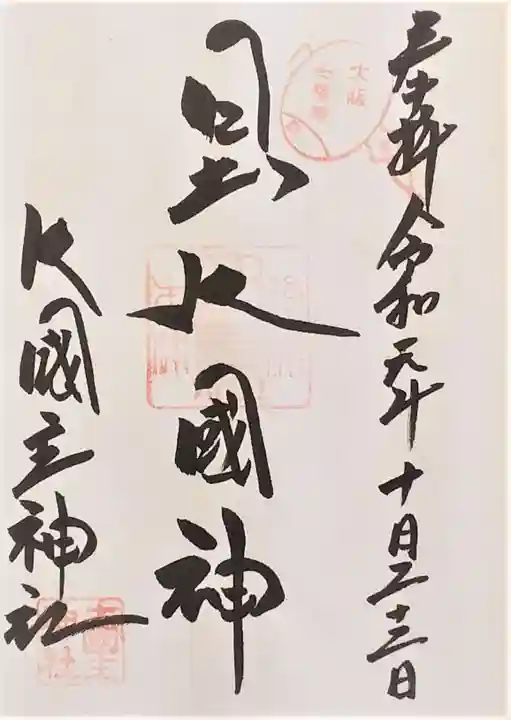 奉拝 令和元年 十月二十三日
大阪
七福神
日出大國神
大國主神社
大國主
神社